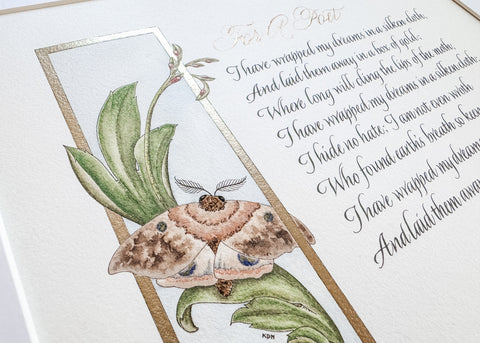 For A Poet
I have wrapped my dreams in a silken cloth,
And laid them away in a box of gold;
Where long will cling the lips of the moth,
I have wrapped my dreams in a silken cloth;
I hide no hate; I am not even wroth
Who found earth's breath so keen
I have wrapped my dreams
And laid them away
KDM